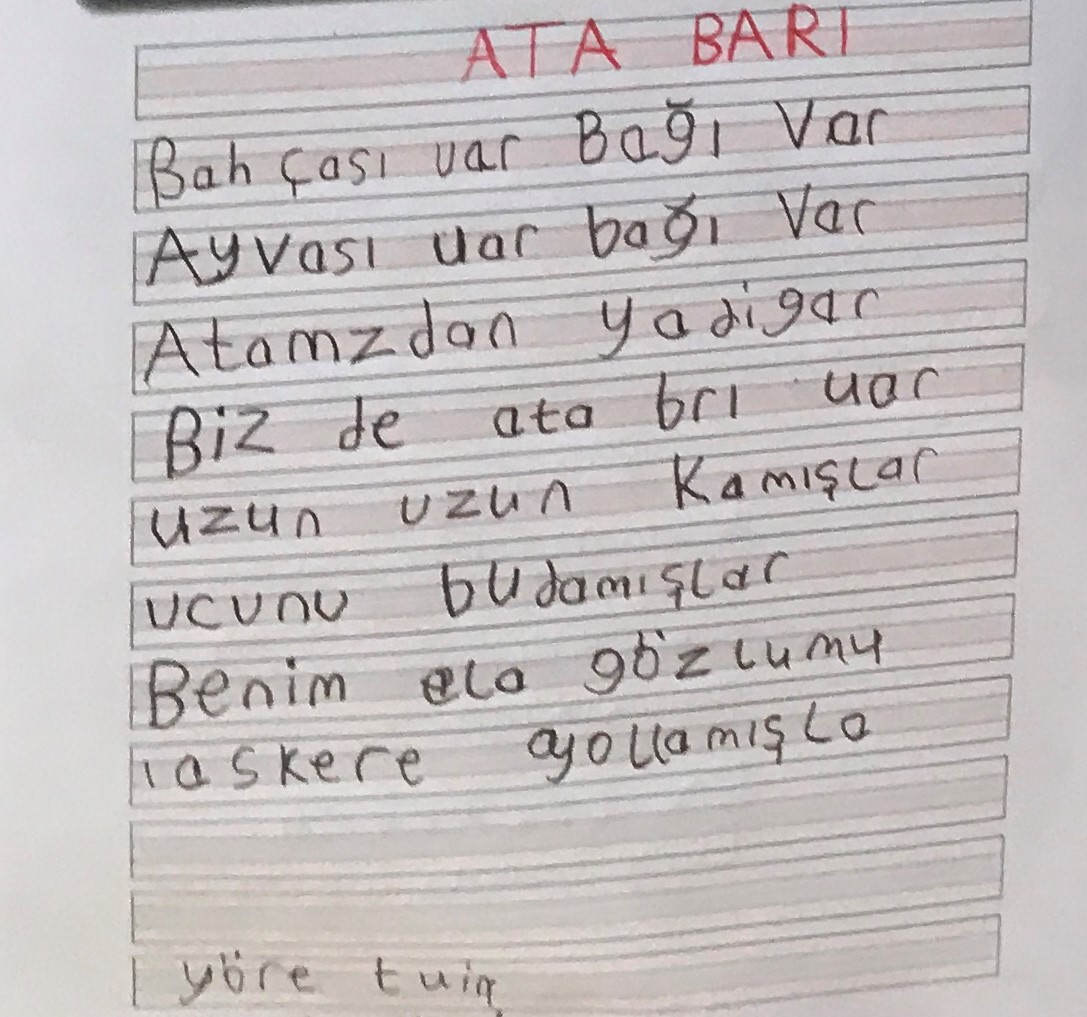 ATA BARI
Bah çası var Bağı Var
Ayvası var bağı Var
Atamzdan yadigar
Biz de ata brı var
uzun uzun Kamışlar
ucunu budamışlar
Benim ela gözlumu
ıaskere ayollamışla
yöre